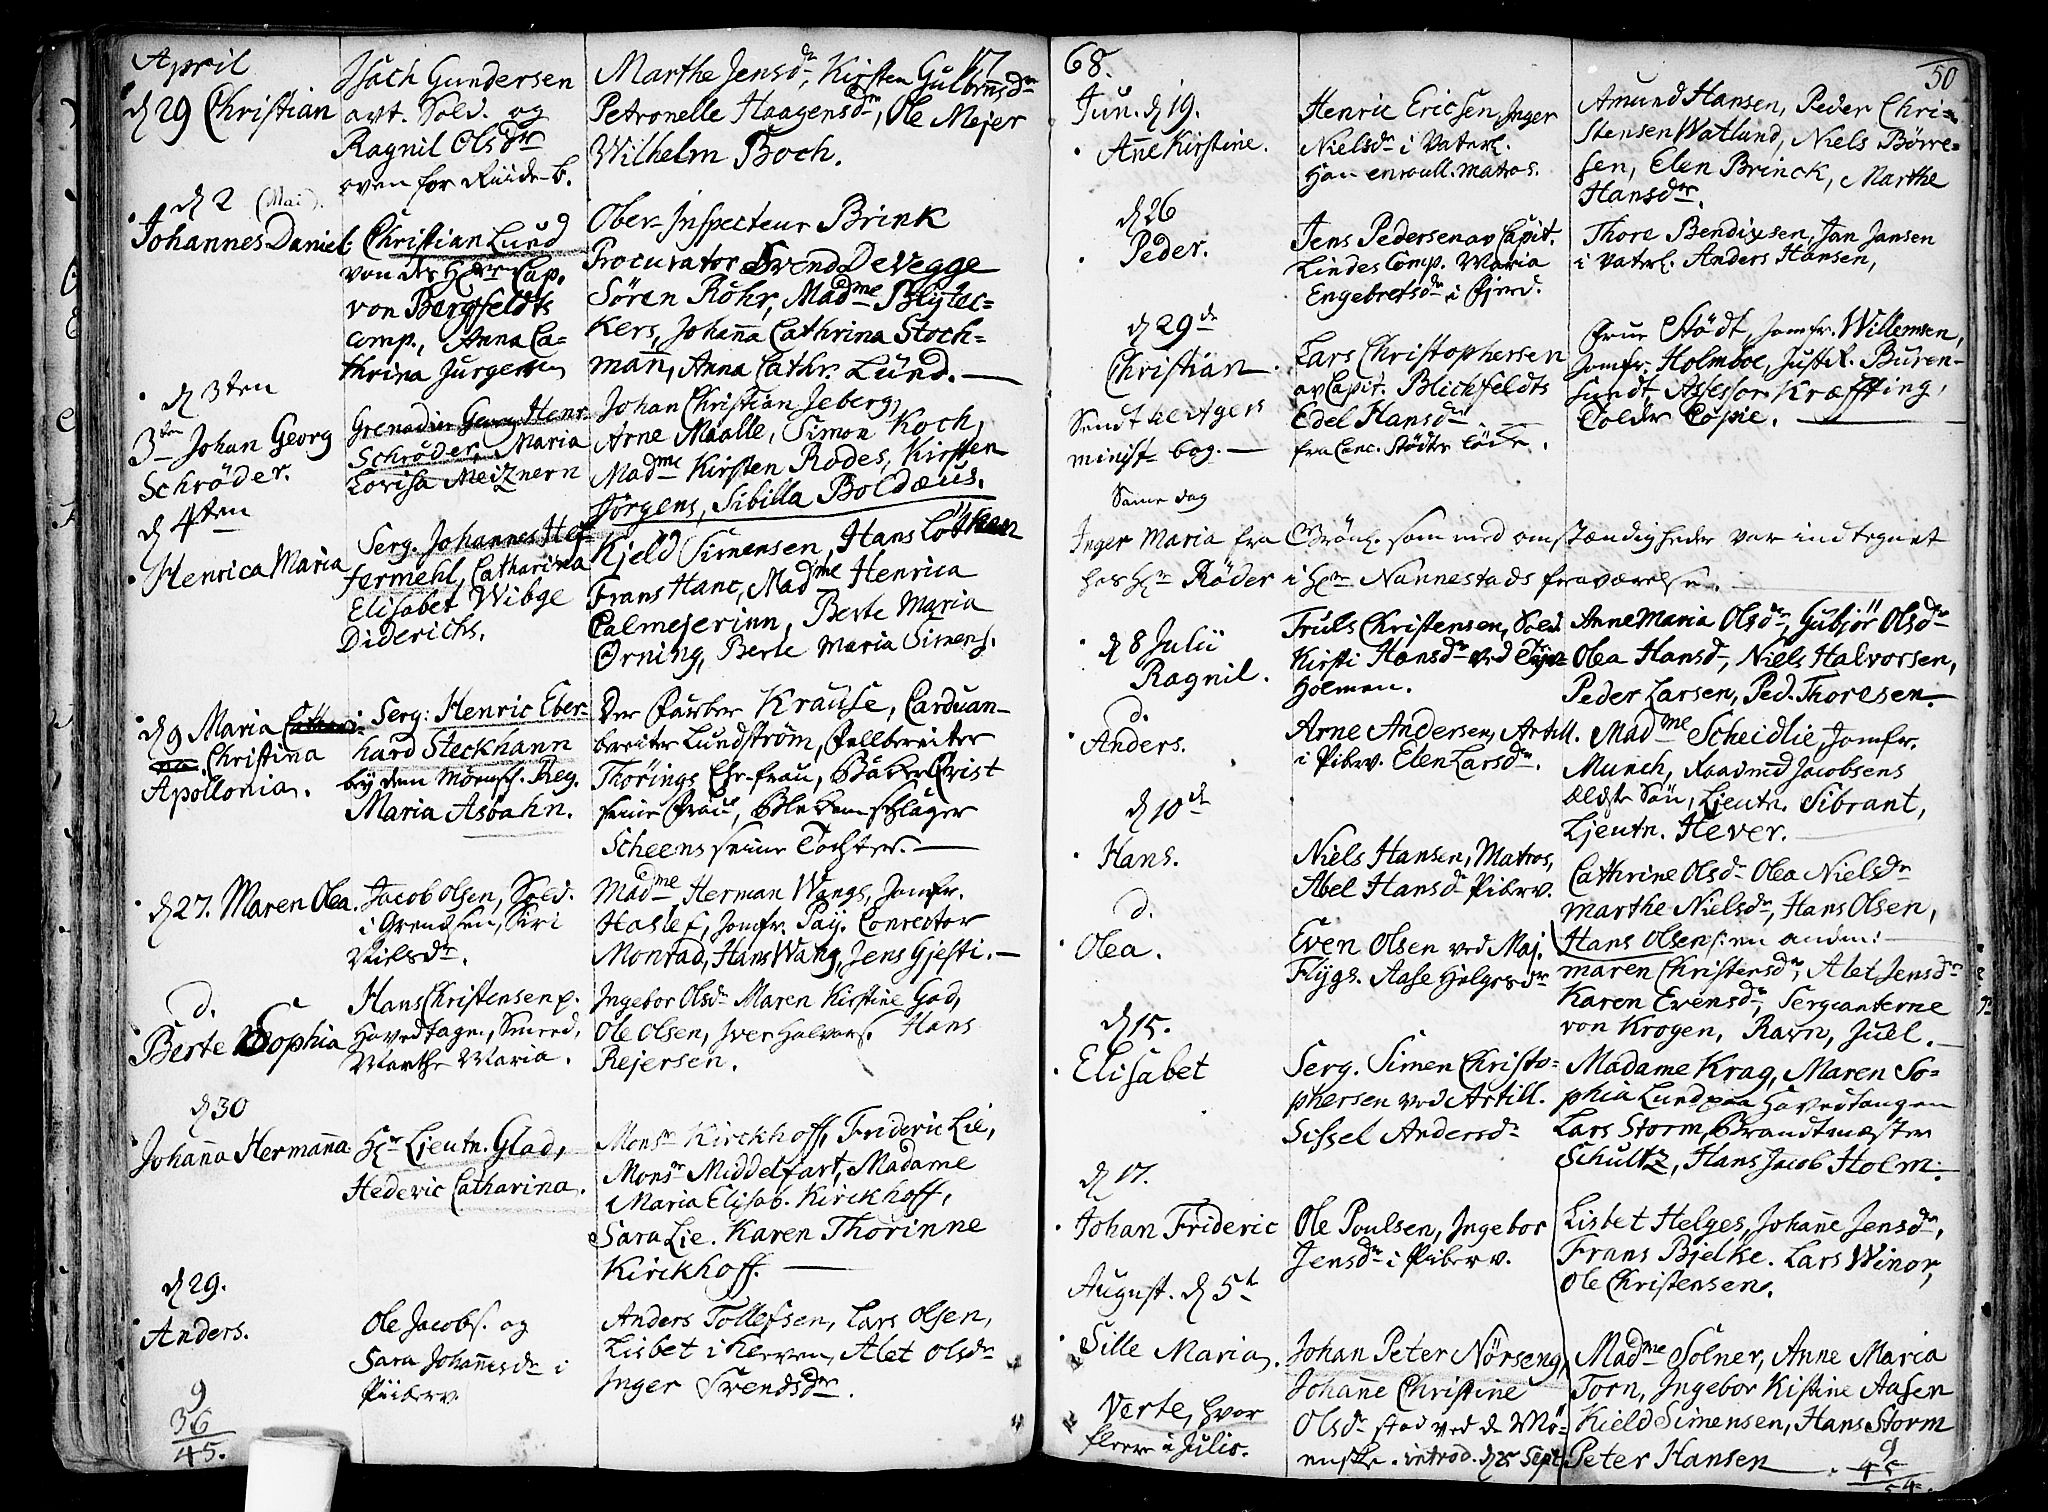 April
17
d 29 Christian
Isach Gundersen
avt. Sold. og
Ragnil Olsdr
oven for Ruidsb.
Marthe Jensdr, Kirsten Gulbrnsdr
Petronelle Haagensdr, Ole Mejer
Wilhelm Boch.
d 2 (Mai).
Johannes Daniel
Christian Lund
von des Hr Cap.
von Bergfeldts
Comp., Anna Ca-
thrina Jurgensen
Ober-Inspecteur Brink
Procurator Svend Devegge
Søren Röhr, Madme Blytec-
kers, Johanna Cathrina Stoch-
mann, Anna Cathr. Lund.
d 3ten
3ten Johan Georg
Schröder.
Grenadier Georg Henr.
Schröder, Maria
Lovisa Meiznern
Johan Christian Jeberg,
Arne Maalle, Simon Koch,
Madme Kirsten Rodes, Kirsten
Jörgens, Sibilla Boldæus.
d 4ten
Henrica Maria
Serg. Johannes Hef-
fermehl, Catharina
Elisabet Wibge
Diderichs.
Kjeld Simensen, Hans Lothen
Frans Hanc, Madme Henrica
Calmejerinn, Berte Maria
Ørning, Berte Maria Simens.
d 9 Maria Cathari-
na. Christina
Apollonia.
Serg: Henric Eber-
hard Steckhann
bey dem Mörensch. Reg.
Maria Asbahn.
Der Farber Krause, Carduan-
breiter Lundström, Fellbreiter
Thörings Ehr-frau, Bäker Qvist
seine Frau, Blekenschläger
Scheens seine Tochter.
d 27. Maren Olea.
Jacob Olsen, Sold.
i Grendsen, Siri
Nielsdr.
Madme Herman Wangs, Jomfr.
Haslef, Jomfr. Pay. Conrector
Monrad, Hans Wang, Jens Gjesti.
d.
Berte Sophia
Hans Christensen p.
Hovedtagn, Smeed,
Marthe Maria.
Ingebor Olsdr Maren Kirstine Gad,
Ole Olsen, Iver Halvors. Hans
Rejersen.
d 30
Johanna Hermanna
Hr Ljeutn. Glad,
Hederic Catharina.
Monsr Kirckhoff, Frideric Lie,
Monsr Middelfart, Madame
Maria Elisab. Kirckhoff,
Sara Lie. Karen Thorinne
Kirckhoff.
d 29.
Anders.
Ole Jacobs. og
Sara Johannesdr i
Piiberv.
Anders Tollefsen, Lars Olsen,
Lisbet i Herven, Alet Olsdr
Inger Svendsdr.
9
36
45.
68.
50
Jun. d 19.
Anne Kirstine.
Henric Ericsen, Inger
Nielsdr i Vaterl.
Han enroull. matros.
Amund Hansen, Peder Chri-
stensen Watlund, Niels Börre-
sen, Elen Brinck, Marthe
Hansdr.
d 26
Peder.
Jens Pedersen av Capit.
Lindes Comp. Maria
Engebretsdr i Fjerd.
Thore Bendixsen, Jan Jansen
i Vaterl. Anders Hansen,
d 29de
Christian.
Sendt til
minist- bog.
Lars Christophersen
av Capit. Blichfeldts
Edel Hansdr
fra Canc. Stödts Löcke.
Frue Stödt, Jomfr. Willemsen,
Jomfr. Holmboe, Justit. Buren-
sundt, Assessor Kræffting,
Tolder Copie.
Same dag
Inger Maria fra Grönl. som med omstændigheder var indtegnet
hos Hr Röder i Hr Nannestads fraværelse.
d 8 Julii
Ragnil.
Truls Christensen, Sold.
Kirsti Hansdr ved Tyv-
Holmen.
Anne Maria Olsdr, Gubjör Olsdr
Olea Hansdr, Niels Halvorsen,
Peder Larsen, Ped. Thoresen.
d.
Anders.
Arne Andersen, Artill.
i Piberv. Elen Larsdr.
Madme Scheidlie, Jomfr.
Munch, Raadmd Jacobsens
ældste Sön, Ljeutn. Sibrant,
Ljeutn. Hever.
d 10de
Hans.
Niels Hansen, Matros,
Abel Hansdr Piberv.
Cathrine Olsdr Olea Nielsdr
Marthe Nielsdr, Hans Olsen,
Hans Olsen :/: en anden:
d.
Olea.
Even Olsen ved Maj.
Flygs. Aase Helgesdr
Maren Christensdr, Alet Jensdr
Karen Evensdr, Sergeanterne
von Krogen, Ravn, Juel.
d 15.
Elisabet
Serg. Simen Christo-
phersen ved Artill.
Sissel Andersdr
Madame Krag, Maren So-
phia Lund paa Hovedtangen
Lars Storm, Brandtmæster
Schultz, Hans Jacob Holm.
d 17.
Johan Frideric
Ole Poulsen, Ingebor
Jensdr i Piberv.
Lisbet Helges, Johanne Jensdr,
Frans Bjelke. Lars Winor,
Ole Christensen.
August. d 5te
Sille Maria.
Verte, hvor
fleere i Julio.
Johan Peter Nörseng,
Johanne Christine
Olsdr stod ved de Mö-
enske. introd. d 25 Sept.
Madme Solner, Anne Maria
Torn, Ingebor Kistine Aasen
Kield Simensen, Hans Storm
Peter Hansen
9
45
54.